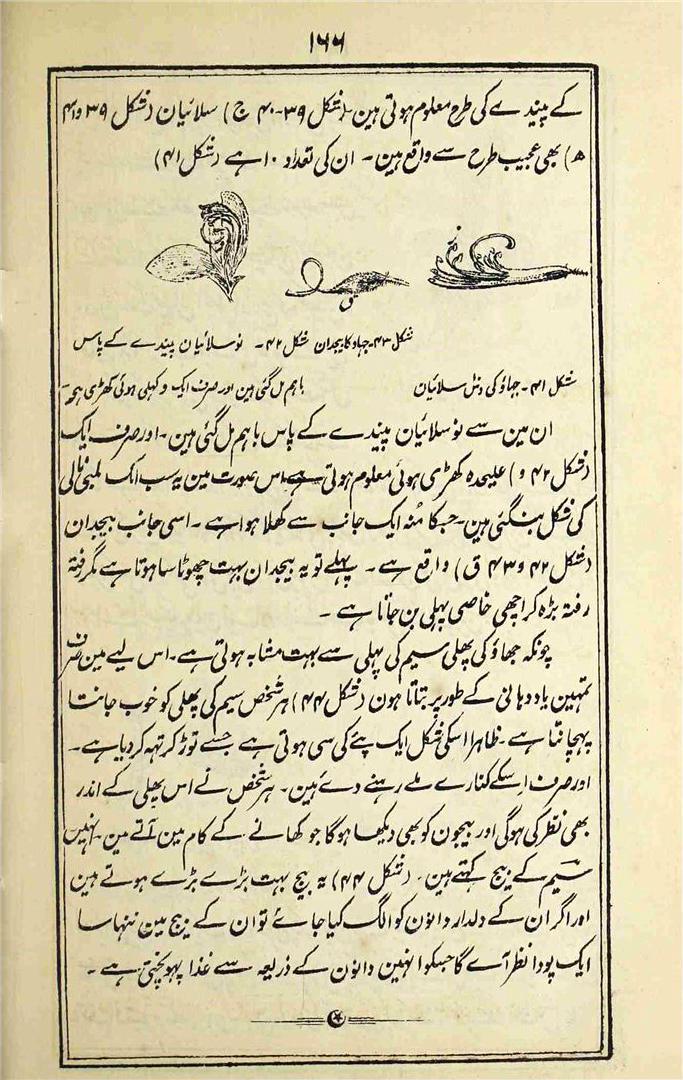 ۱۶۶
کے پیندے کی طرح معلوم ہوتی ہین۔ (شکل ۳۹-۴۰ ج) سلائیان (شکل ۳۹ و ۴۱
ھ) بھی عجیب طرح سے واقع ہین۔ ان کی تعداد ۱۰ ہے (شکل ۴۱)
شکل ۴۳۔ جھاؤ کا بیجدان شکل ۴۲۔ نو سلائیان پیندے کے پاس
شکل ۴۱۔ جھاؤ کی دس سلائیان باہم مل گئی ہین اور صرف ایک و کھلی ہوئی کھڑی ہے۔
ان مین سے نو سلائیان پیندے کے پاس باہم مل گئی ہین۔ اور صرف ایک
(شکل ۴۲ و) علیحدہ کھڑی ہوئی معلوم ہوتی ہے۔ اس صورت مین یہ سب ایک لمبی نالی
کی شکل بنگئی ہین۔ جسکا مُنہ ایک جانب سے کھلا ہوا ہے۔ اسی جانب بیجدان
(شکل ۴۲ و ۴۳ ق) واقع ہے۔ پہلے تو یہ بیجدان بہت چھوٹا سا ہوتا ہے مگر رفتہ
رفتہ بڑہ کر اچھی خاصی پہلی بن جاتا ہے ۔
چونکہ جھاؤ کی پھلی سیم کی پہلی سے بہت مشابہ ہوتی ہے۔ اس لیے مین صرف
تمہین یاد دہانی کے طور پر بتاتا ہون (شکل ۴۴) ہر شخص سیم کی پھلی کو خوب جانتا
پہچانتا ہے۔ ظاہرا اسکی شکل ایک پتے کی سی ہوتی ہے جسے توڑ کر تہہ کر دیا ہے۔
اور صرف اسکے کنارے ملے رہنے دئے ہین۔ ہر شخص نے اس پھلی کے اندر
بھی نظر کی ہوگی اور بیجون کو بھی دیکھا ہوگا جو کھانے کے کام مین آتے ہین۔ انہین
سیم کے بیج کہتے ہین۔ (شکل ۴۴) یہ بیج بہت بڑے بڑے ہوتے ہین
اور اگر ان کے دلدار دانون کو الگ کیا جائے تو ان کے بیج مین ننہا سا
ایک پودا نظر آے گا جسکو انہین دانون کے ذریعہ سے غذا پہونچتی ہے ۔